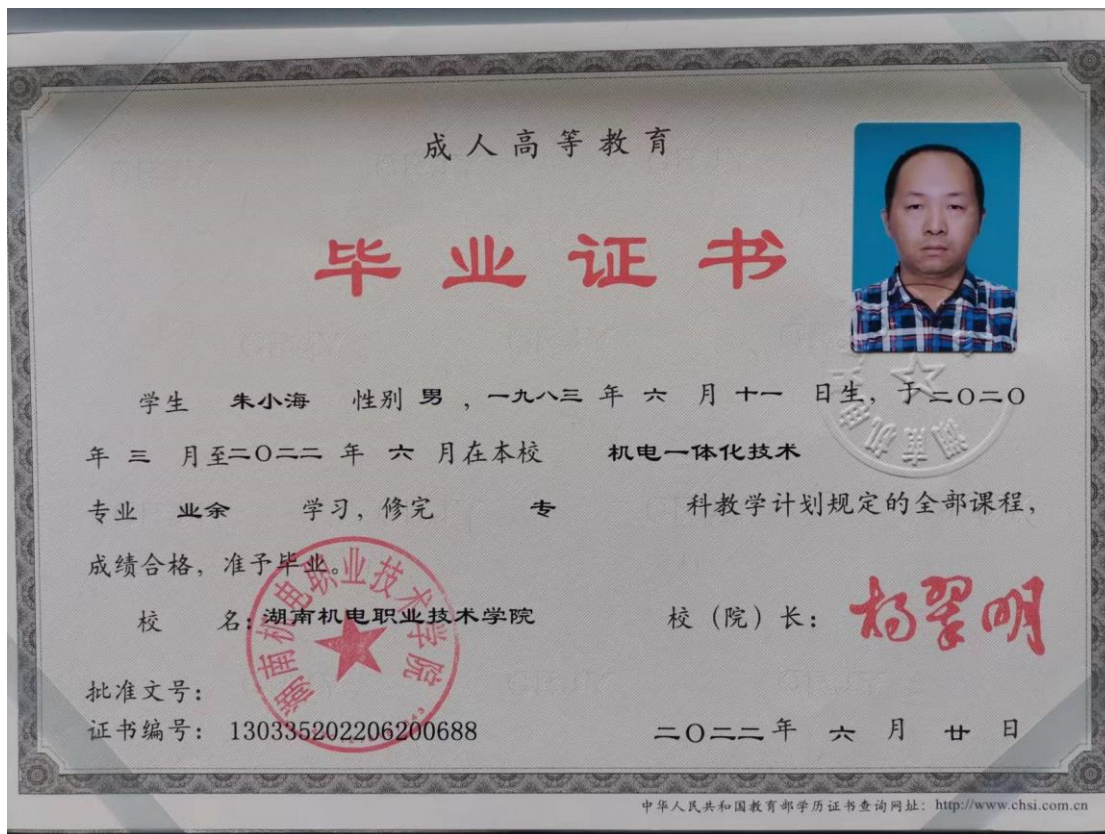 成人高等教育
毕业证书
学生 朱小海 性别 男 , 一九八三 年 六 月 十一 日生, 于二〇二〇
年 三 月至二〇二二 年 六 月在本校 机电一体化技术
专业 业余 学习, 修完 专 科教学计划规定的全部课程,
成绩合格, 准予毕业。
校 名: 湖南机电职业技术学院 校（院）长: 杨翠明
湖南机电职业技术学院
批准文号:
证书编号: 130335202206200688 二〇二二年 六 月 廿 日
中华人民共和国教育部学历证书查询网址: http://www.chsi.com.cn